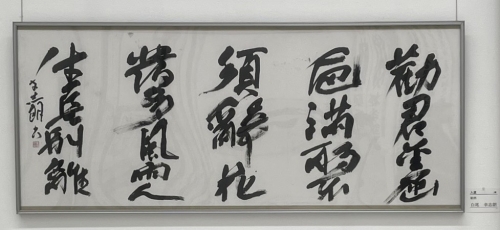 勸君金屈
巵滿酌不
須辭花
發多風雨人
生足別離